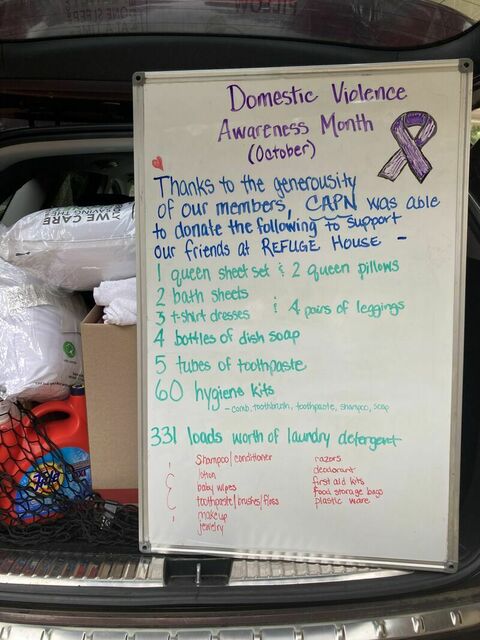 WE CARE
SAVING THE
Domestic Violence
Awareness Month
(October)
Thanks to the generousity
of our members, CAPN was able
to donate the following to support
our friends at REFUGE HOUSE -
1 queen sheet set & 2 queen pillows
2 bath sheets
3 t-shirt dresses & 4 pairs of leggings
4 bottles of dish soap
5 tubes of toothpaste
60 hygiene kits
- comb, toothbrush, toothpaste, shampoo, soap
331 loads worth of laundry detergent
&
shampoo/conditioner
lotion
baby wipes
toothpaste/brushes/floss
makeup
jewelry
razors
deodorant
first aid kits
food storage bags
plastic ware
Tide